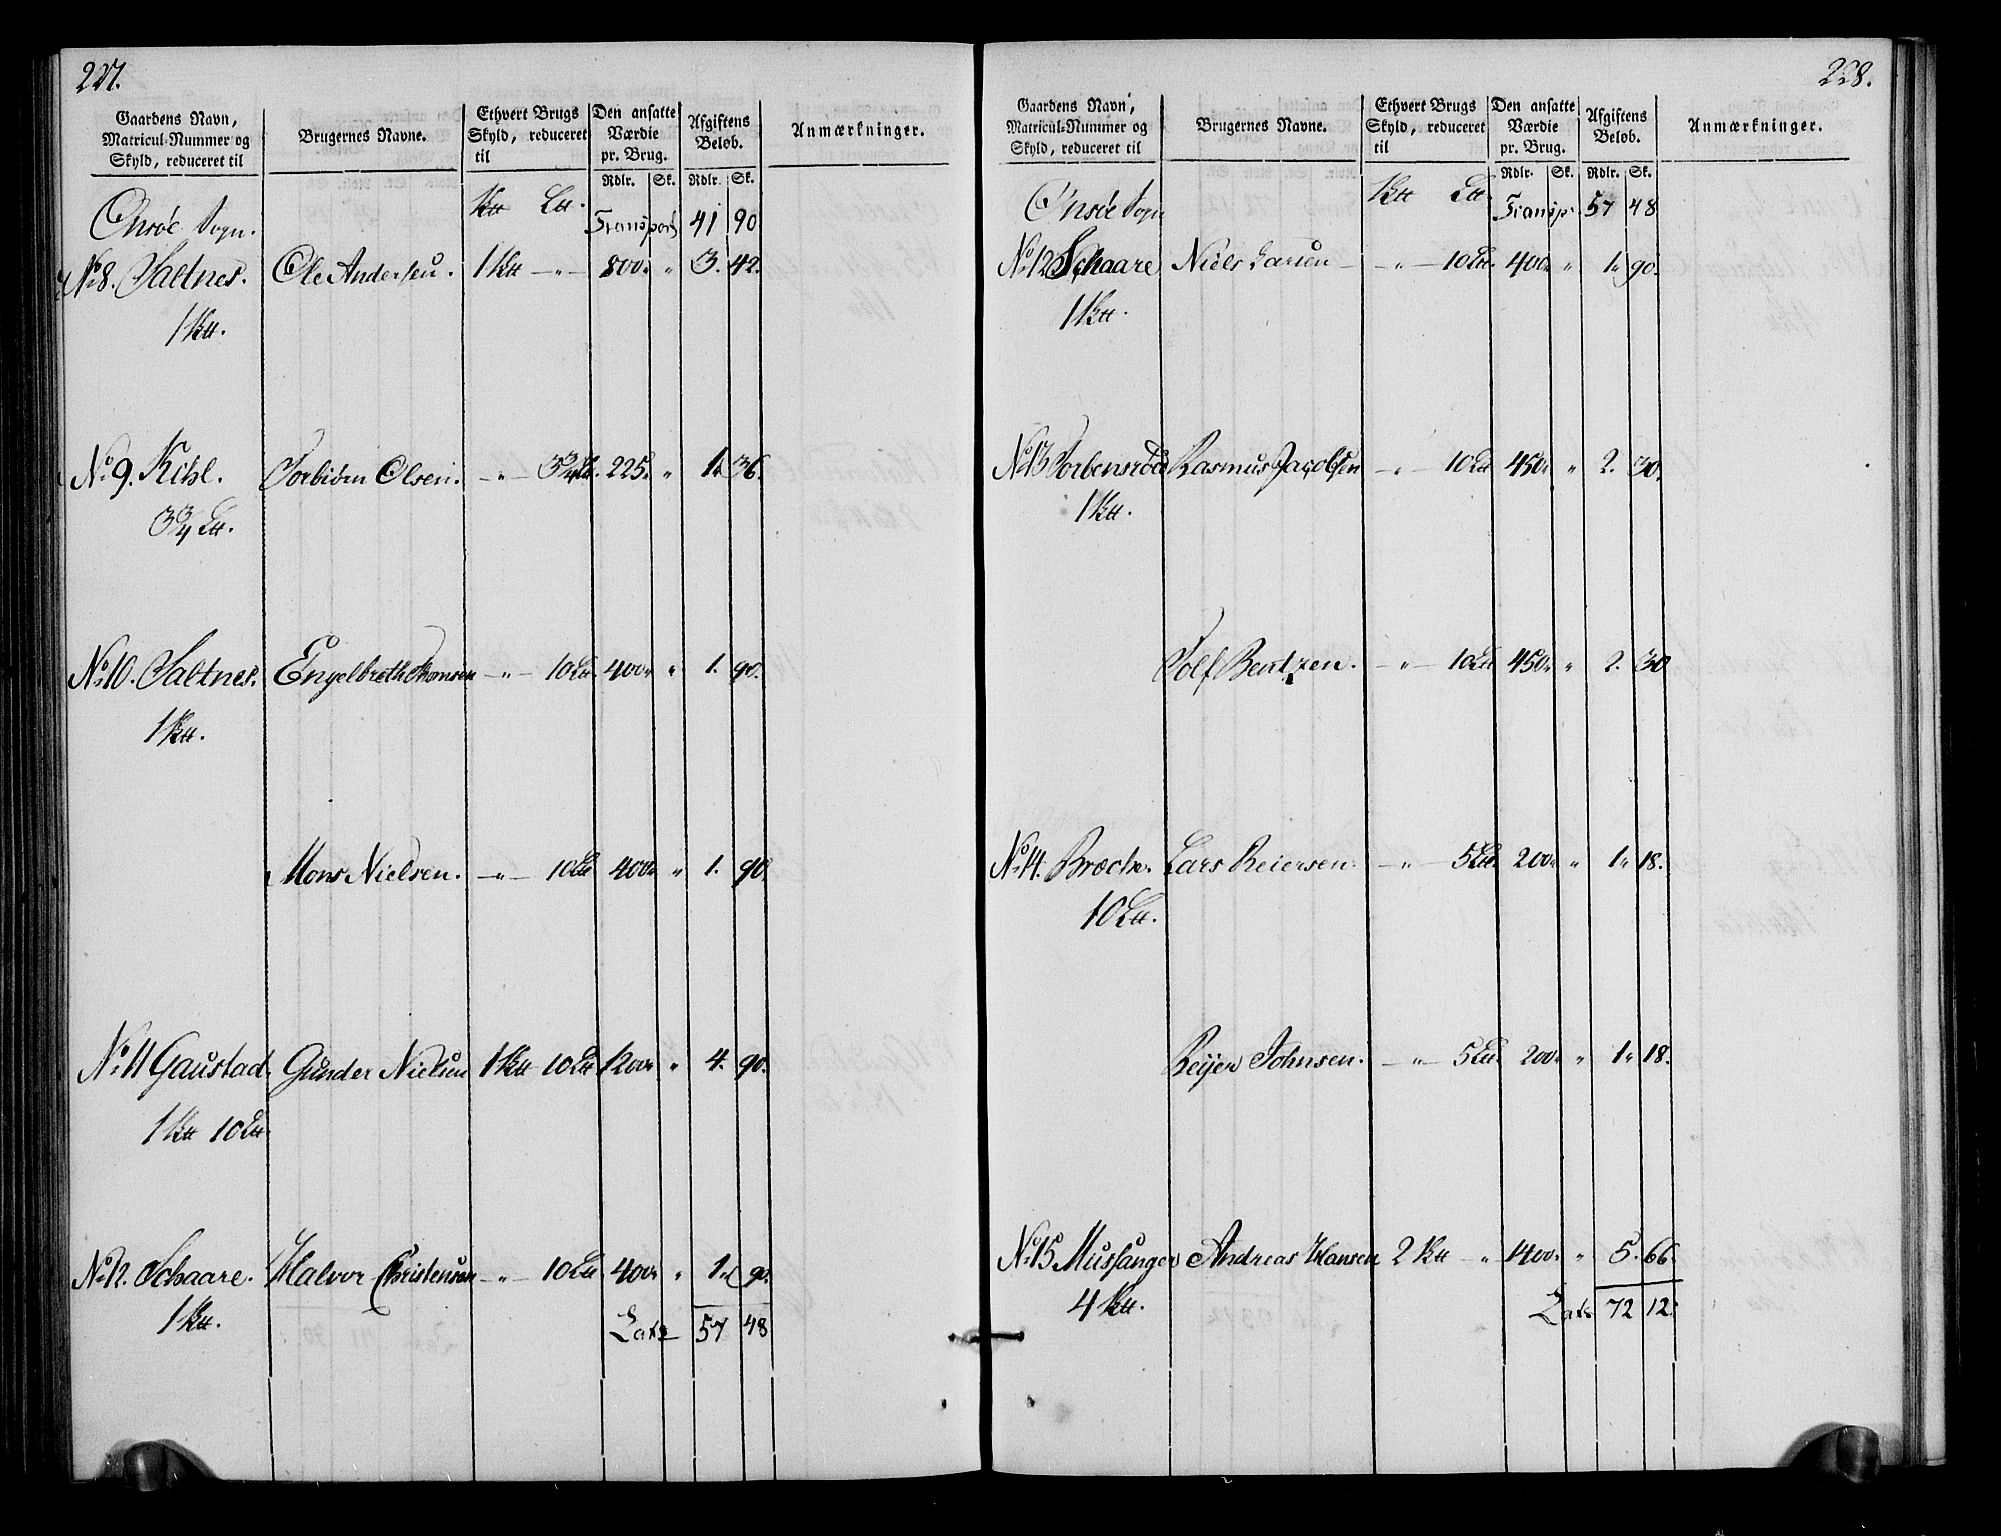 227.
Gaardens Navn, Matricul-Nummer og Skyld, reduceret til | Brugernes Navne. | Ethvert Brugs Skyld, reduceret til | Den ansatte Værdie pr. Brug. | Afgiftens Beløb. | Anmærkninger.
Rdlr. Sk. Rdlr. Sk.
Onsöe Sogn. L℔. Transport 41 90
No 8. Saltnes. Ole Andersen. 1 800 " 3. 42.
1
No 9. Kihl. Torbiörn Olsen. " 3¾ 225 " 1. 36.
3¾ L℔.
No 10. Saltnes. Engelbreth Thomsen " 10 L℔ 400 " 1. 90.
1
Mons Nielsen. " 10 L℔ 400 " 1. 90.
No 11 Gaustad. Gunder Nielsen 1 10 L℔ 1200 " 4. 90.
1 10 L℔
No 12. Schaare. Halvor Christensen " 10 L℔ 400 " 1. 90.
1
Lats 57 48
228.
Gaardens Navn, Matricul-Nummer og Skyld, reduceret til | Brugernes Navne. | Ethvert Brugs Skyld, reduceret til | Den ansatte Værdie pr. Brug. | Afgiftens Beløb. | Anmærkninger.
Rdlr. Sk. Rdlr. Sk.
Onsöe Sogn L℔. Transp. 57 48
No 12 Schaare Niels Larsen " 10 L℔. 400 " 1 90.
1
No 13 Torbensröd Rasmus Jacobsen " 10 L℔ 450 " 2. 30.
1
Tolf Bentzen. " 10 L℔ 450 " 2. 30
No 14. Broche. Lars Reiersen. " 5 L℔. 200 " 1 18.
10 L℔.
Reijer Johnsen. " 5 L℔. 200 " 1 18.
No 15 Andreas Hansen 2 " 1400 " 5. 66.
4
Lats 72 12.